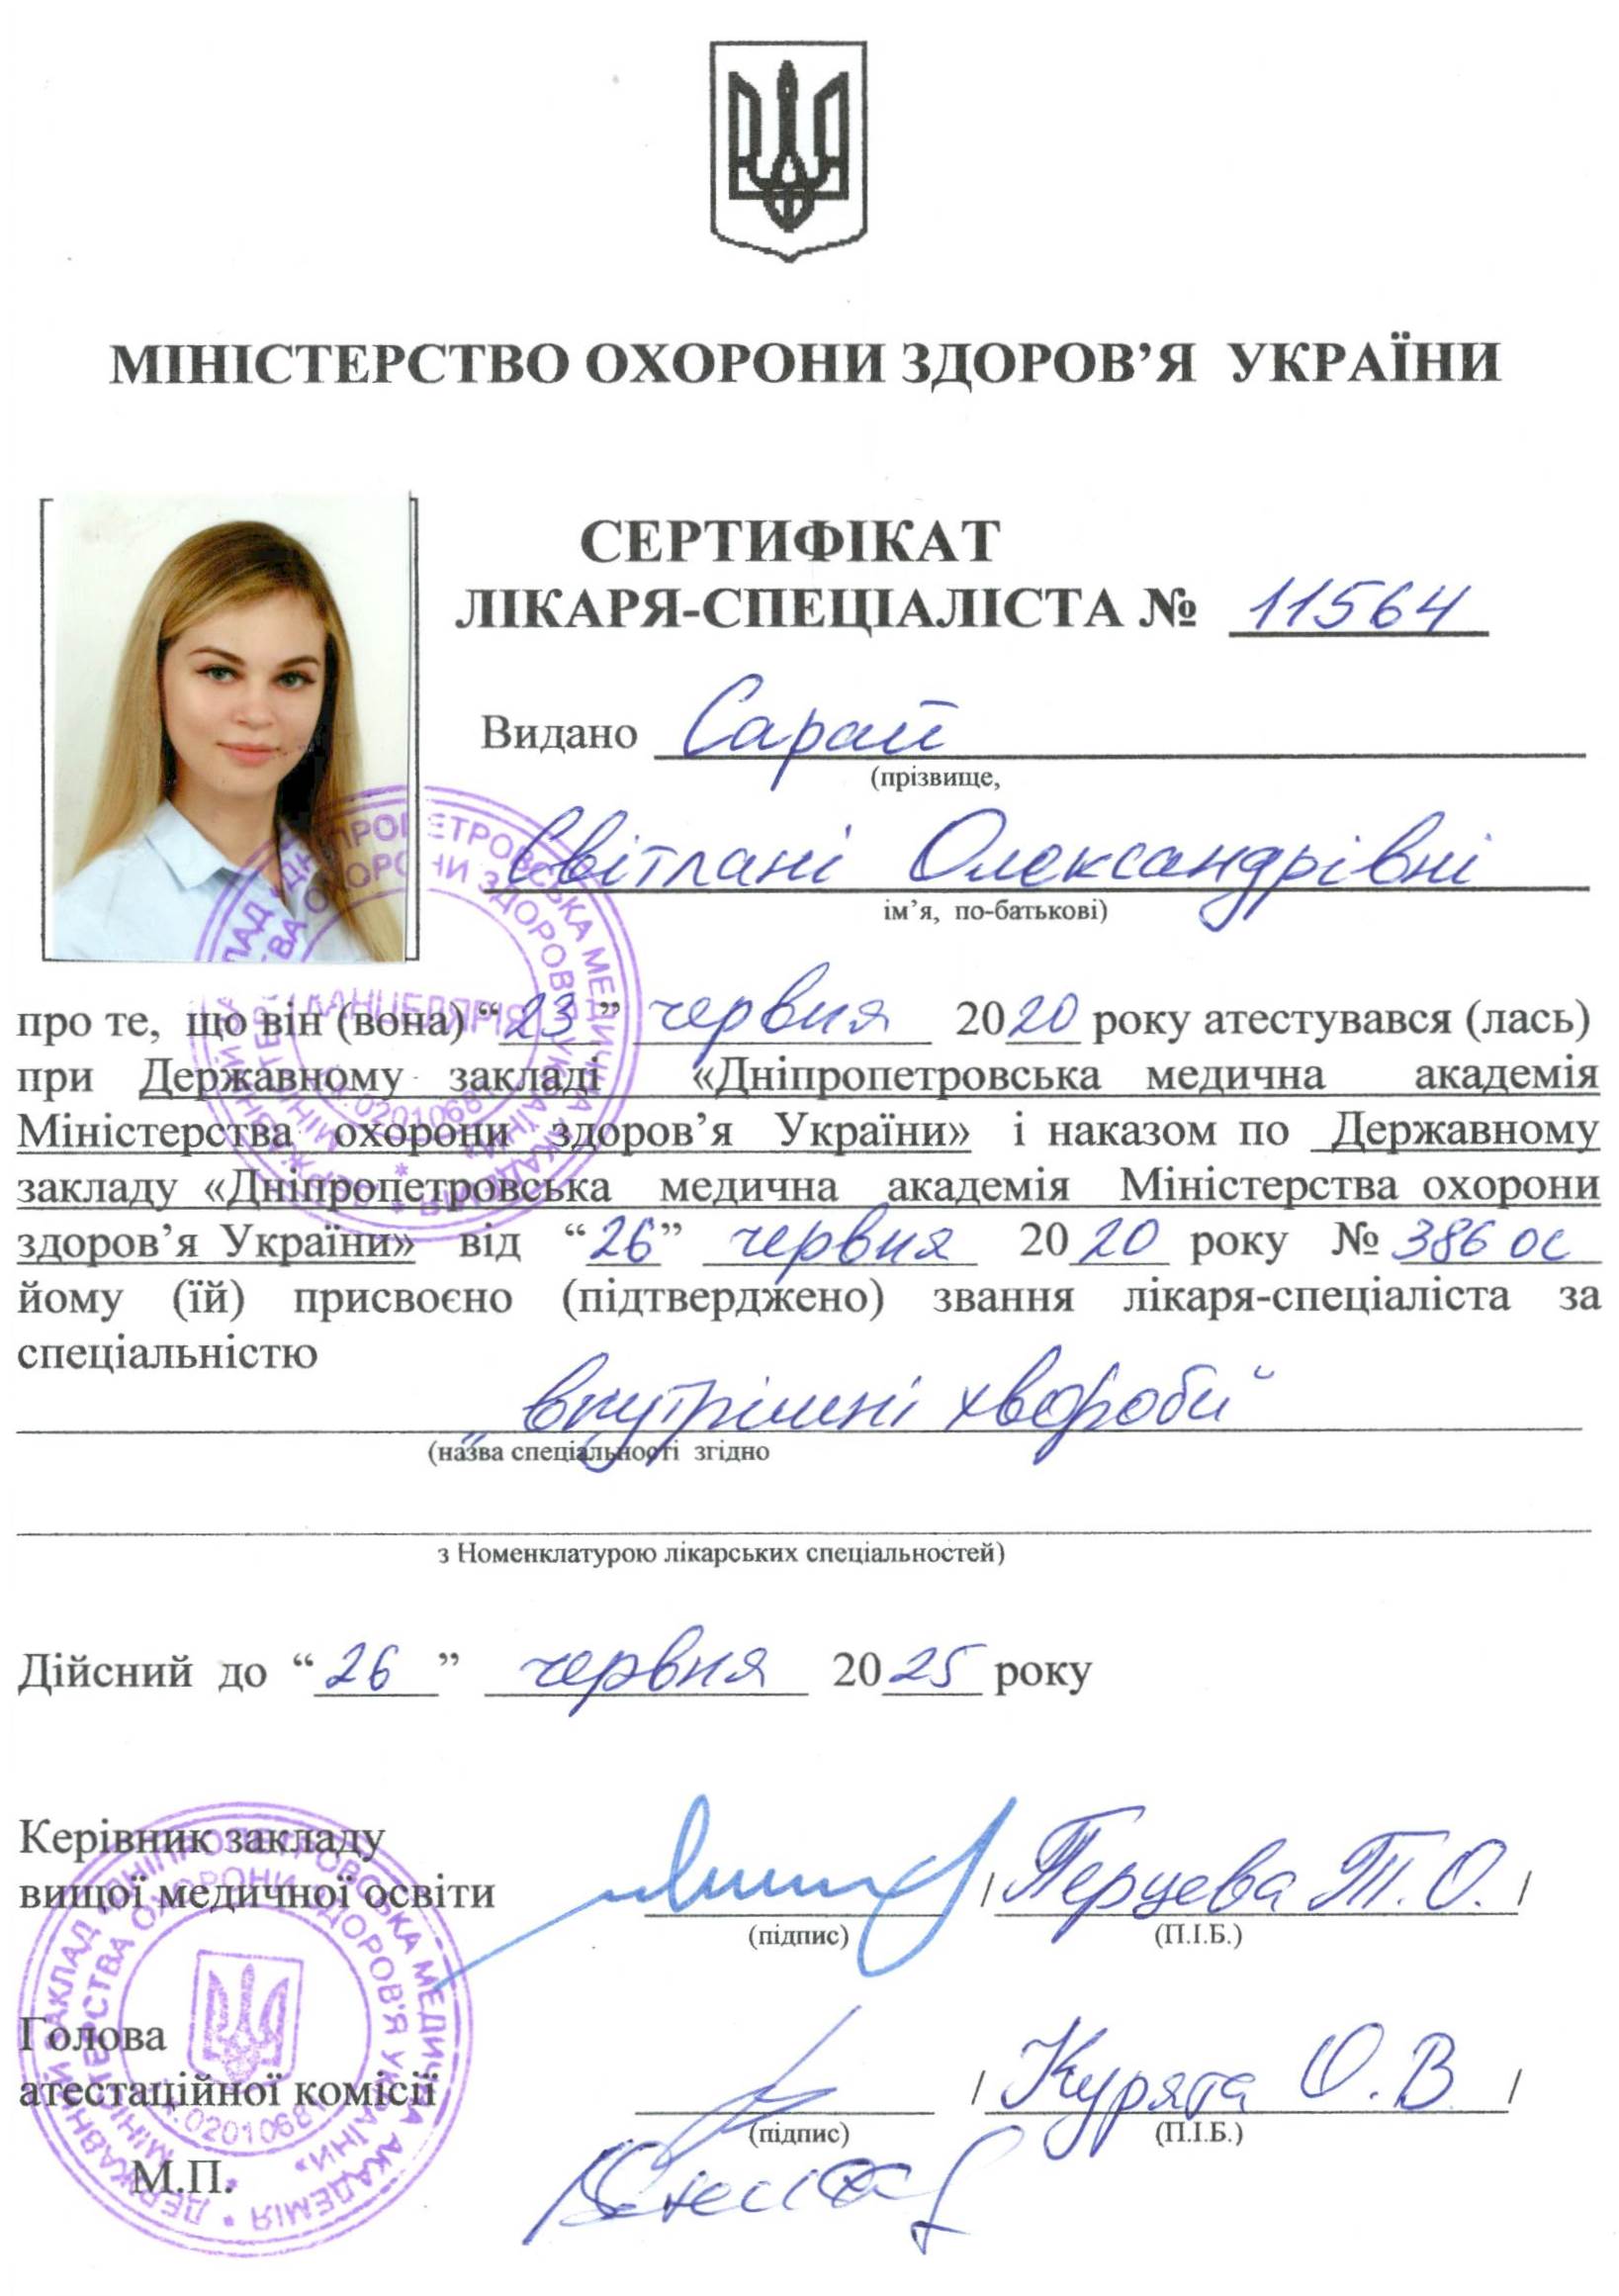 МІНІСТЕРСТВО ОХОРОНИ ЗДОРОВ’Я УКРАЇНИ
СЕРТИФІКАТ
ЛІКАРЯ-СПЕЦІАЛІСТА № 11564
Видано Сарай
(прізвище,
Світлані Олександрівні
ім’я, по-батькові)
про те, що він (вона) “23” червня 2020 року атестувався (лась)
при Державному закладі «Дніпропетровська медична академія
Міністерства охорони здоров’я України» і наказом по Державному
закладу «Дніпропетровська медична академія Міністерства охорони
здоров’я України» від “26” червня 2020 року № 386 ос
йому (їй) присвоєно (підтверджено) звання лікаря-спеціаліста за
спеціальністю
внутрішні хвороби
(назва спеціальності згідно
з Номенклатурою лікарських спеціальностей)
Дійсний до “26” червня 2025 року
Керівник закладу
вищої медичної освіти / Перцева Т.О. /
(підпис) (П.І.Б.)
Голова
атестаційної комісії / Курята О.В /
(підпис) (П.І.Б.)
М.П.
ДЕРЖАВНИЙ ЗАКЛАД «ДНІПРОПЕТРОВСЬКА МЕДИЧНА АКАДЕМІЯ
МІНІСТЕРСТВА ОХОРОНИ ЗДОРОВ'Я УКРАЇНИ»
КАНЦЕЛЯРІЯ
02010681